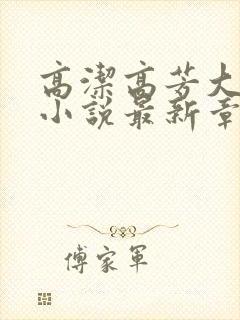 高潔高芳大
小說最新章
傅家軍